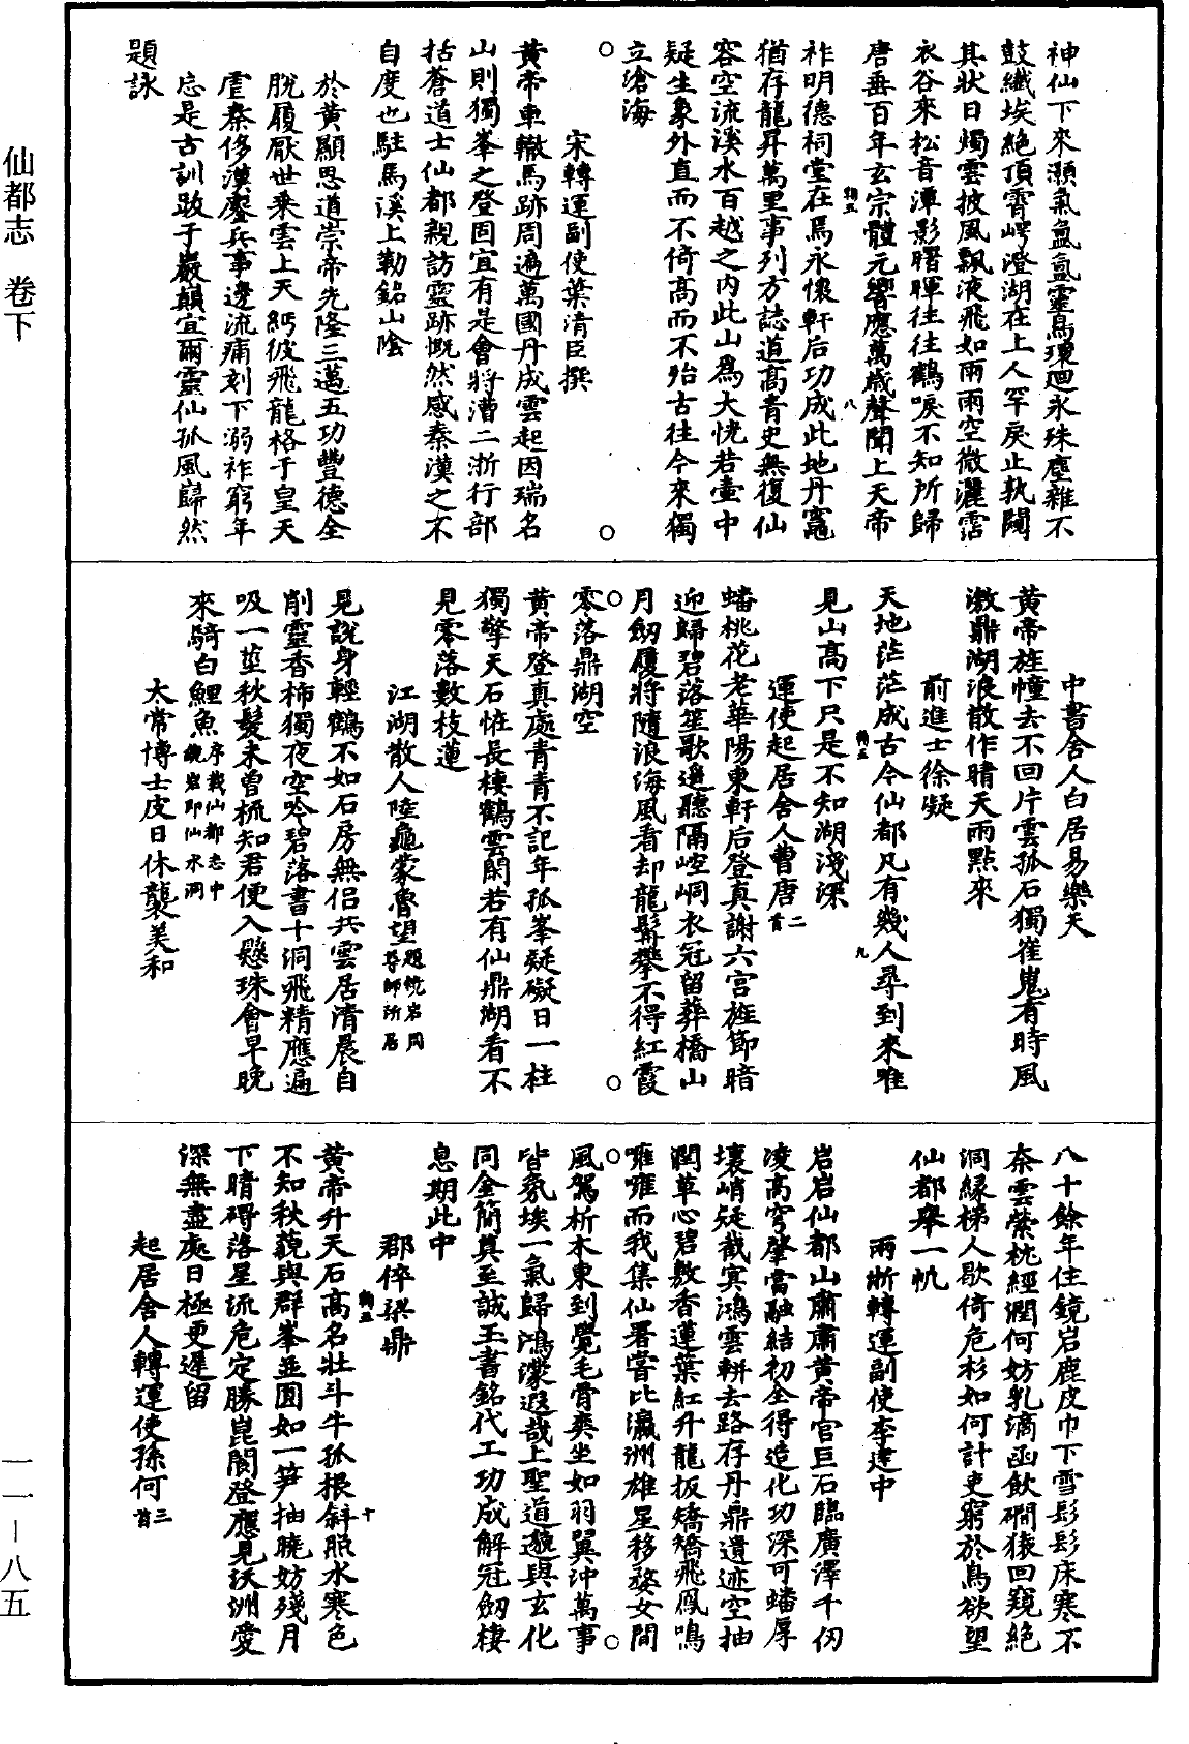 仙都志　卷下
一一－八五
神仙下來灝氣氤氳靈鳥環廻氷珠塵雜不
鼓纖埃絶頂霄崿澄湖在上人罕戾止孰闚
其狀日燭雲披風飄液飛如雨雨空微灑霑
衣谷來松音潭影曙暉往往鶴唳不知所歸
唐垂百年玄宗體元響應萬歲聲聞上天帝
祚明德祠堂在焉永懷軒后功成此地丹竈
猶存龍昇萬里事列方誌道高青史無復仙
容空流溪水百越之内此山爲大恍若壷中
疑生象外直而不倚高而不殆古往今來獨
立滄海
宋轉運副使葉清臣撰
黄帝車轍馬跡周遍萬國丹成雲起因瑞名
山則獨峯之登固宜有是會將漕二浙行部
括蒼道士仙都親訪靈跡慨然感秦漢之不
自度也駐馬溪上勒銘山陰
於黄顯思道崇帝先隆三邁五功豐德全
脫履厭世乘雲上天緬彼飛龍格于皇天
虐秦侈漢鏖兵事邊流痛刻下溺祚窮年
忘是古訓跂于巖巔宜爾靈仙孤風巋然
題詠
中書舍人白居易樂天
黄帝旌幢去不回片雲孤石獨崔嵬有時風
激鼎湖浪散作晴天雨點來
前進士徐凝
天地茫茫成古今仙都凡有幾人尋到來唯
見山高下只是不知湖淺深
運使起居舍人曹唐二首
蟠桃花老華陽東軒后登真謝六宫旌節暗
迎歸碧落笙歌遥聽隔崆峒衣冠留葬橋山
月劒履將隨浪海風看却龍髯攀不得紅霞
零落鼎湖空
黄帝登真處青青不記年孤峯疑礙日一柱
獨擎天石恠長棲鶴雲閑若有仙鼎湖看不
見零落數枝蓮
江湖散人陸龜蒙魯望題恍岩周尊師所居
見說身輕鶴不如石房無侣共雲居清晨自
削靈香柿獨夜空吟碧落書十洞飛精應遍
吸一莖秋髮未曽梳知君便入懸珠會早晚
來騎白鯉魚序載仙都志中鏡岩即仙水洞
太常博士皮日休襲美和
八十餘年住鏡岩鹿皮巾下雪髟髟床寒不
奈雲縈枕經潤何妨乳滴函飲磵猿回窺絶
洞緑梯人歇倚危杉如何計吏窮於鳥欲望
仙都舉一帆
兩浙轉運副使李建中
岩岩仙都山肅肅黄帝宫巨石臨廣澤千仞
凌高穹肇當融結初全得造化功深可蟠厚
壤峭疑截寅鴻雲軿去路存丹鼎遺迹空抽
潤草心碧敷香蓮葉紅升龍扳矯矯飛鳳鳴
噰噰而我集仙署嘗比瀛洲雄星移婺女間
風駕析木東到覺毛骨爽坐如羽翼沖萬事
皆氛埃一氣歸鴻濛遐哉上聖道邈與玄化
同金簡莫至誠玉書銘代工功成解冠劒棲
息期此中
郡倅梁鼎
黄帝升天石高名壯斗牛孤根斜照水寒色
不知秋藐與群峯並圓如一笋抽曉妨殘月
下晴碍落星流危定勝崑閬登應見沃洲愛
深無盡處日極更遲留
起居舍人轉運使孫何三首